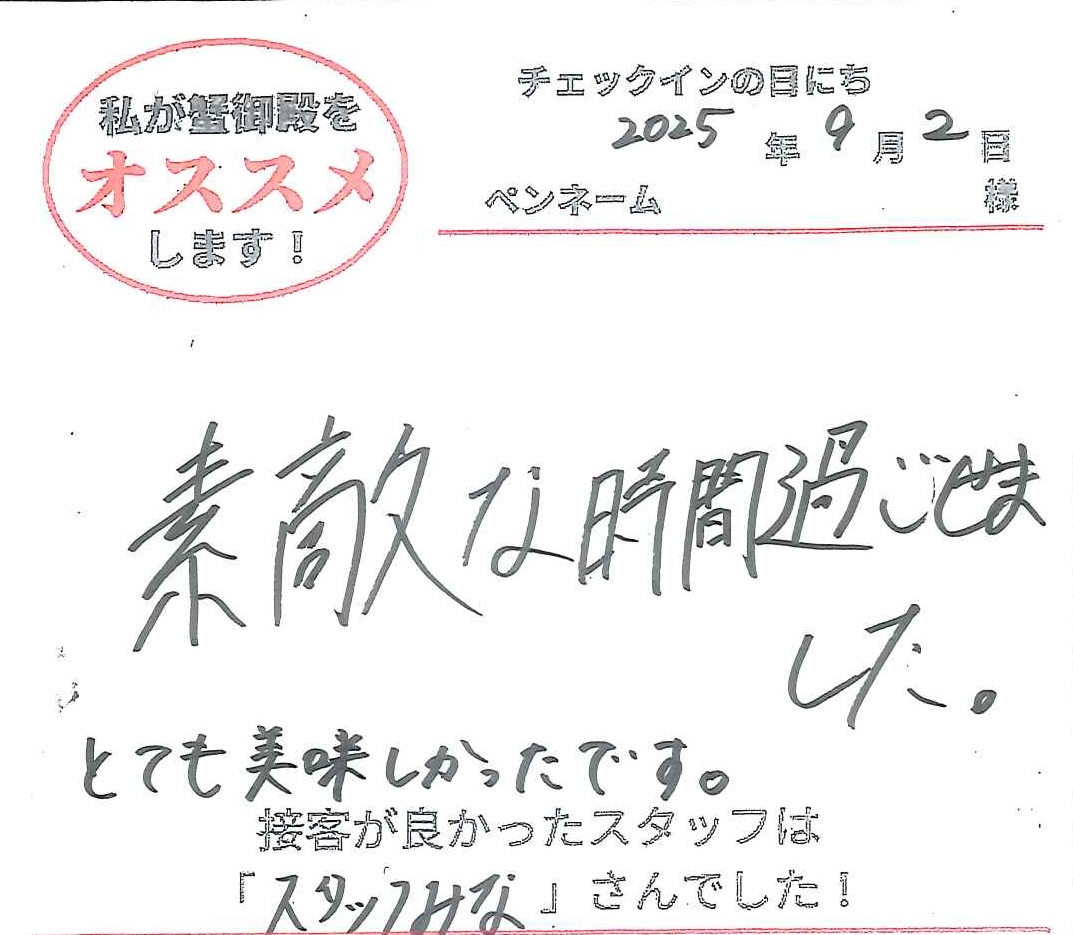 私が蟹御殿を
オススメ
します!
チェックインの日にち
2025年9月2日
ペンネーム 様
素敵な時間過ごせま
した。
とても美味しかったです。
接客が良かったスタッフは
「スタッフみな」さんでした!